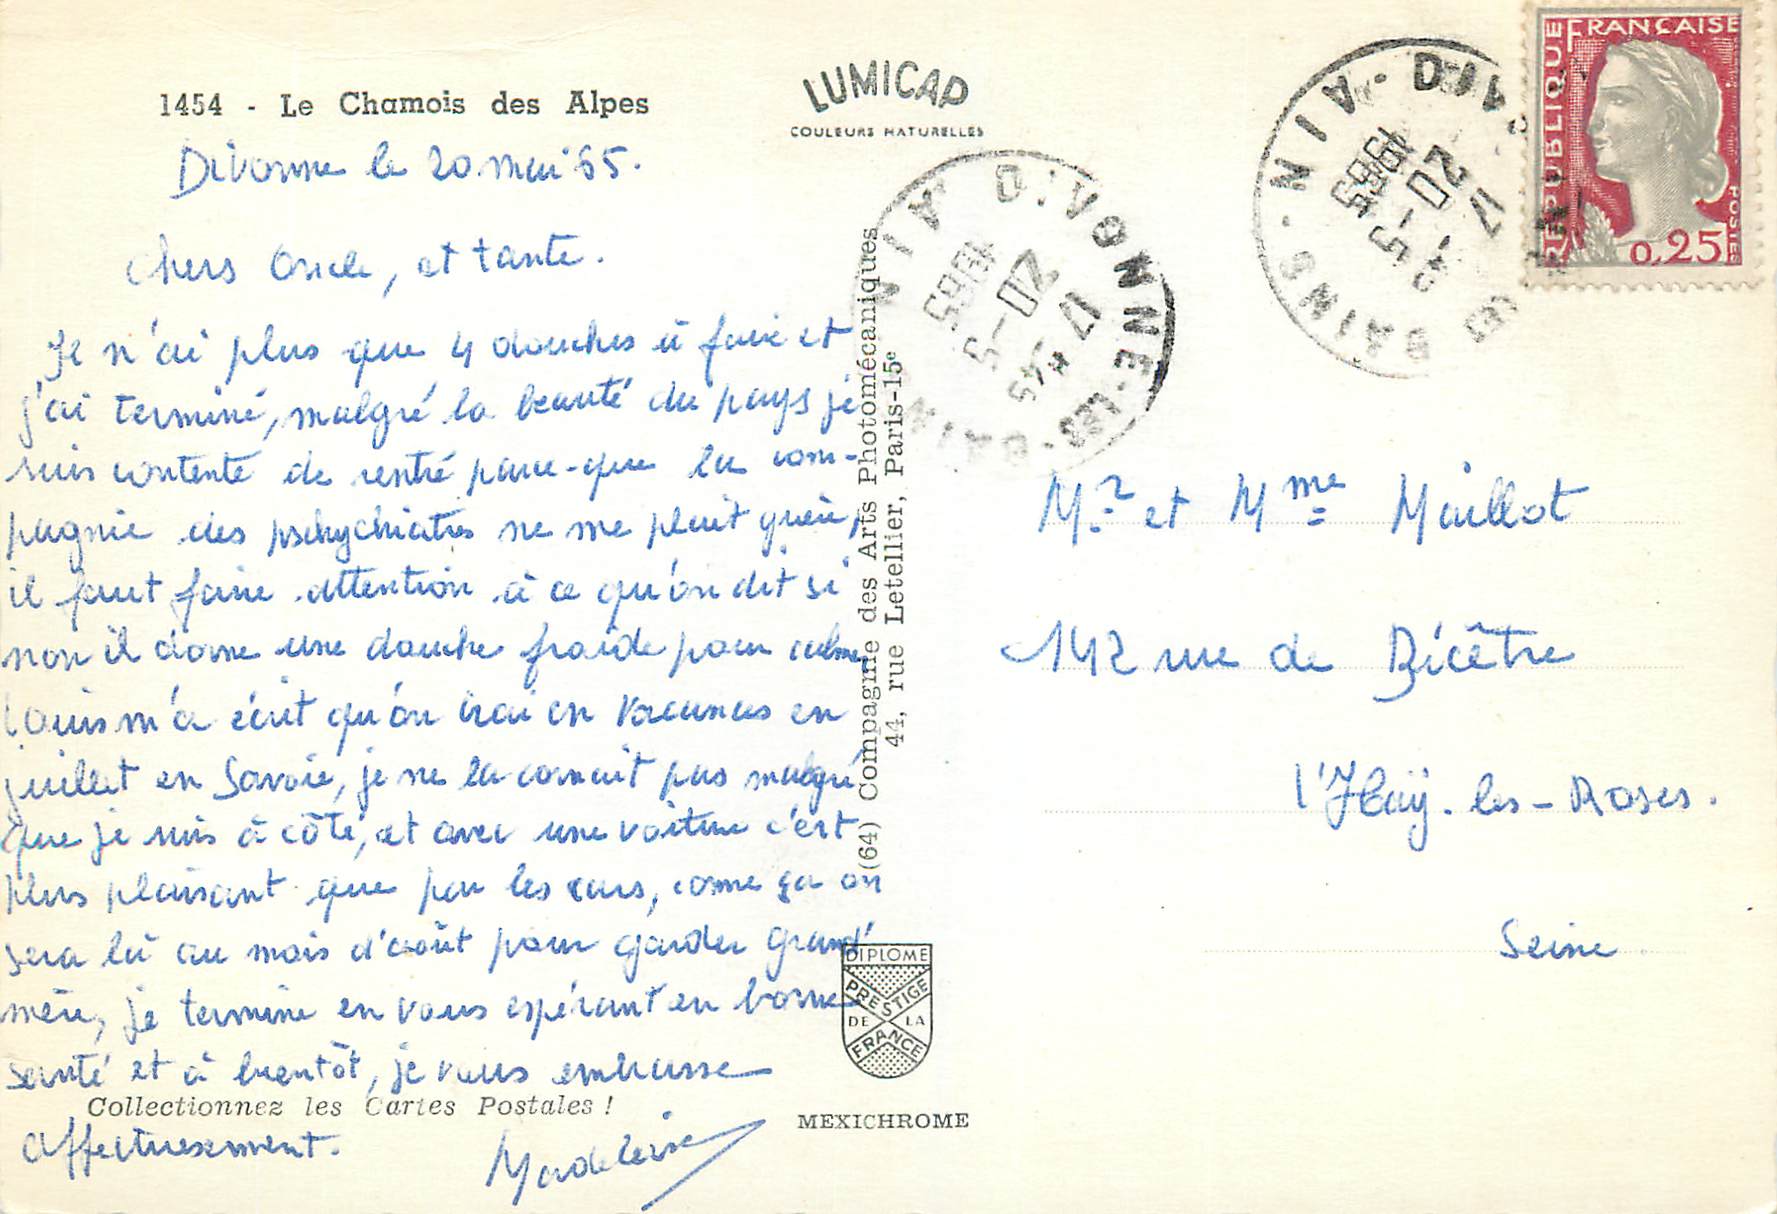 1454 - Le Chamois des Alpes
Divonne le 20 mai 65.
Chers Oncle, et tante.
Je n'ai plus que 4 douches à faire et
j'ai terminé, malgré la beauté du pays je
suis contente de rentré parce-que la com-
pagnie des pschychiatres ne me plait guère,
il faut faire attention à ce qu'on dit si
non il donne une douche froide pour calmer
Louis m'a écrit qu'on irai en vacances en
juillet en Savoie, je ne la connait pas malgré
que je suis à côté, et avec une voiture c'est
plus plaisant que par les cars, comme ça on
sera là au mois d'août pour garder grand'
mère, je termine en vous espérant en bonne
santé et à bientôt, je vous embrasse
Collectionnez les Cartes Postales !
affectuesement.
Madeleine
LUMICAP
COULEURS NATURELLES
(64) Compagnie des Arts Photomécaniques
44, rue Letellier, Paris-15e
DIPLOME
PRESTIGE
DE LA
FRANCE
MEXICHROME
DIVONNE-LES-BAINS
AIN
17 H 45
20-5
1965
DIVONNE-LES-BAINS - AIN
17 H
20-5
1965
REPUBLIQUE FRANÇAISE
POSTES
0,25
Mr et Mme Maillot
142 rue de Bicêtre
l'Haÿ-les-Roses.
Seine